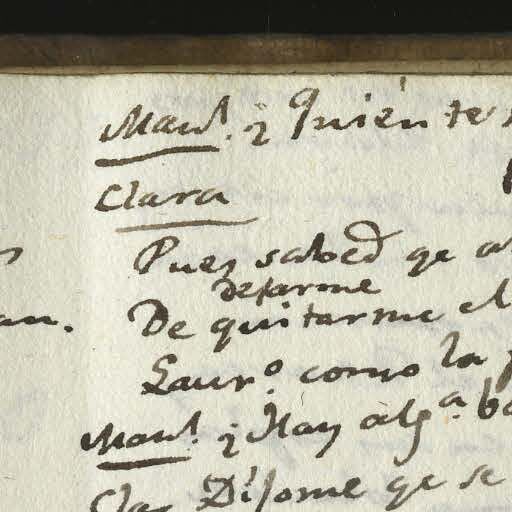 Manl. ¿Quién te
Clara
Pues sabed qe
dejarme
an. De quitarme el
Laur.º como la
Manl. ¿Hay alg.a
Cla Díjome qe se